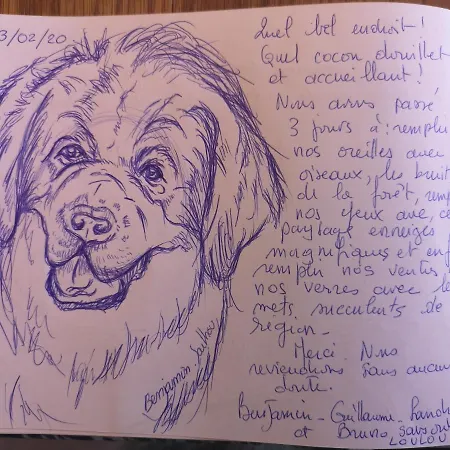 3/02/20
Quel bel endroit!
Quel cocon douillet
et accueillant!
Nous avons passé
3 jours à: remplir
nos oreilles avec
oiseaux, les bruit
de la forêt, remp
nos yeux avec ce
paysage enneigés
magnifiques et enf
remplir nos ventres
nos verres avec le
mets succulents de
région_
Merci. Nous
reviendrons sans aucun
doute.
Benjamin_Guillaume_
et Bruno,
LOULOU
Benjamin